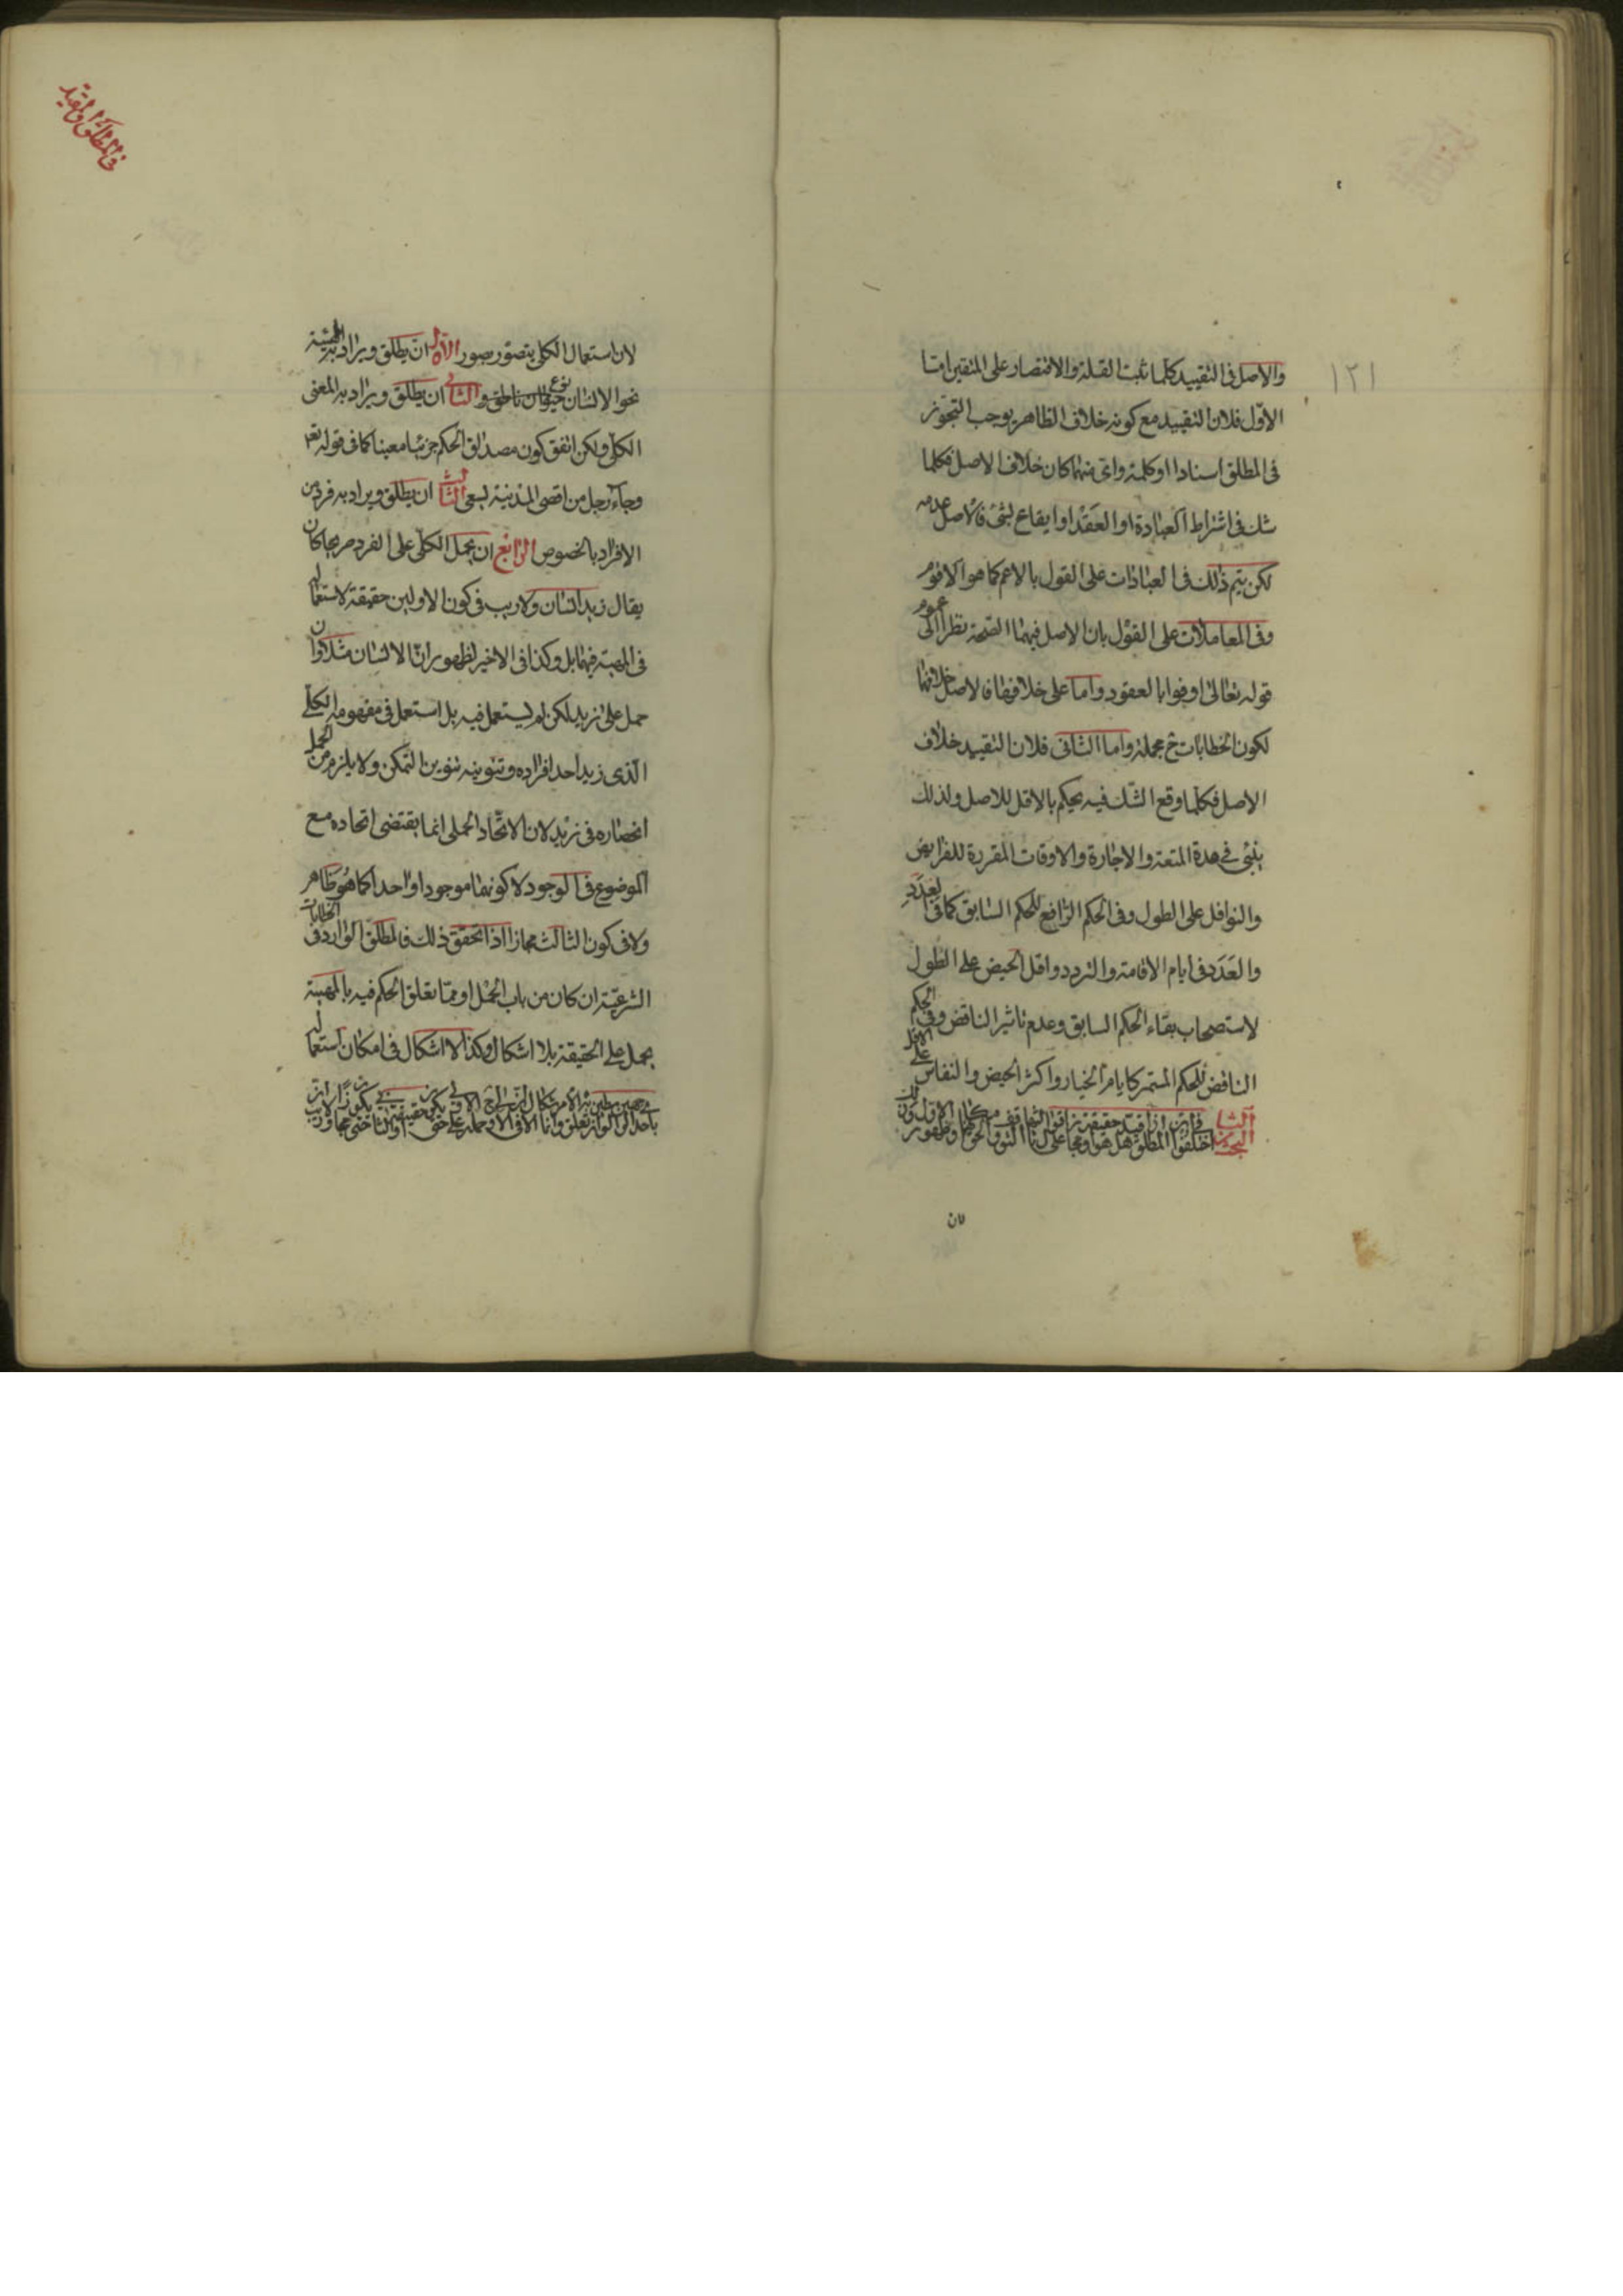 ١٢١
والاصل فى التقييد كلما ثبت القلة والاقتصار على المتقين امّا
الاوّل فلان التقييد مع كونه خلاف الظاهر يوجب التجوّز
فى المطلق اسنادا او كلمة واىّ منهما كان خلاف الاصل فكلما
شك فى اشتراط العبادة او العقد او ايقاع لشئ فالاصل عدمه
لكن يتم ذلك فى العبادات على القول بالاعم كما هو الاقوم
وفى المعاملات على القول بان الاصل فيهما الصحة نظرا الى عموم
قوله تعالى اوفوا بالعقود واما على خلافه فالاصل خلافهما
لكون الخطابات ح مجملة واما الثانى فلان التقييد خلاف
الاصل فكلما وقع الشك فيه يحكم بالاقل للاصل ولذلك
بنى فى مدة المتعة والاجارة والاوقات المقررة للفرايض
والنوافل على الطول وفى الحكم الرافع للحكم السابق كما فى بعدد
والعدد فى ايام الاقامة والتردد واقل الحيض على الطول
لاستصحاب بقاء الحكم السابق وعدم تاثير الناقض وفى الحكم
الناقض للحكم المستمر كايام الخيار واكثر الحيض والنفاس على الاقل
البحث الثانى اختلفوا فى ان المطلق اذا قيد هل هو حقيقة او مجاز
لان
فى المطلق والمقيد
لان استعمال الكلى يتصوّر بصور الاوّل ان يطلق ويراد به المهيّة
نحو الانسان نوع حيوان ناطق والثانى ان يطلق ويراد به المعنى
الكلّى ولكن اتفق كون مصداق الحكم جزئيا معينا كما فى قوله تعم
وجآء رجل من اقصى المدينة يسعى الثالث ان يطلق ويراد به فرد من
الافراد بالخصوص الرّابع ان يحمل الكلّى على الفرد صريحا كان
يقال زيد انسان ولا ريب فى كون الاولين حقيقة لاستعماله
فى المهية فيهما بل وكذا فى الاخير لظهور انّ الانسان مثلا وان
حمل على زيد لكن لم يستعمل فيه بل استعمل فى مفهومه الكلّى
الّذى زيد احد افراده وتنوينه تنوين التمكن ولا يلزم من الحمل
انحصاره فى زيد لان الاتّحاد الحملى انما يقتضى اتحاده مع
الموضوع فى الوجود لا كونهما موجودا واحدا كما هو ظاهر
ولا فى كون الثالث مجازا اذا تحقق ذلك فالمطلق الوارد فى الخطابات
الشرعيّة ان كان من باب الجمل او ممّا تعلق الحكم فيه بالمهية
يحمل على الحقيقة بلا اشكال وكذا لا اشكال فى امكان استعماله